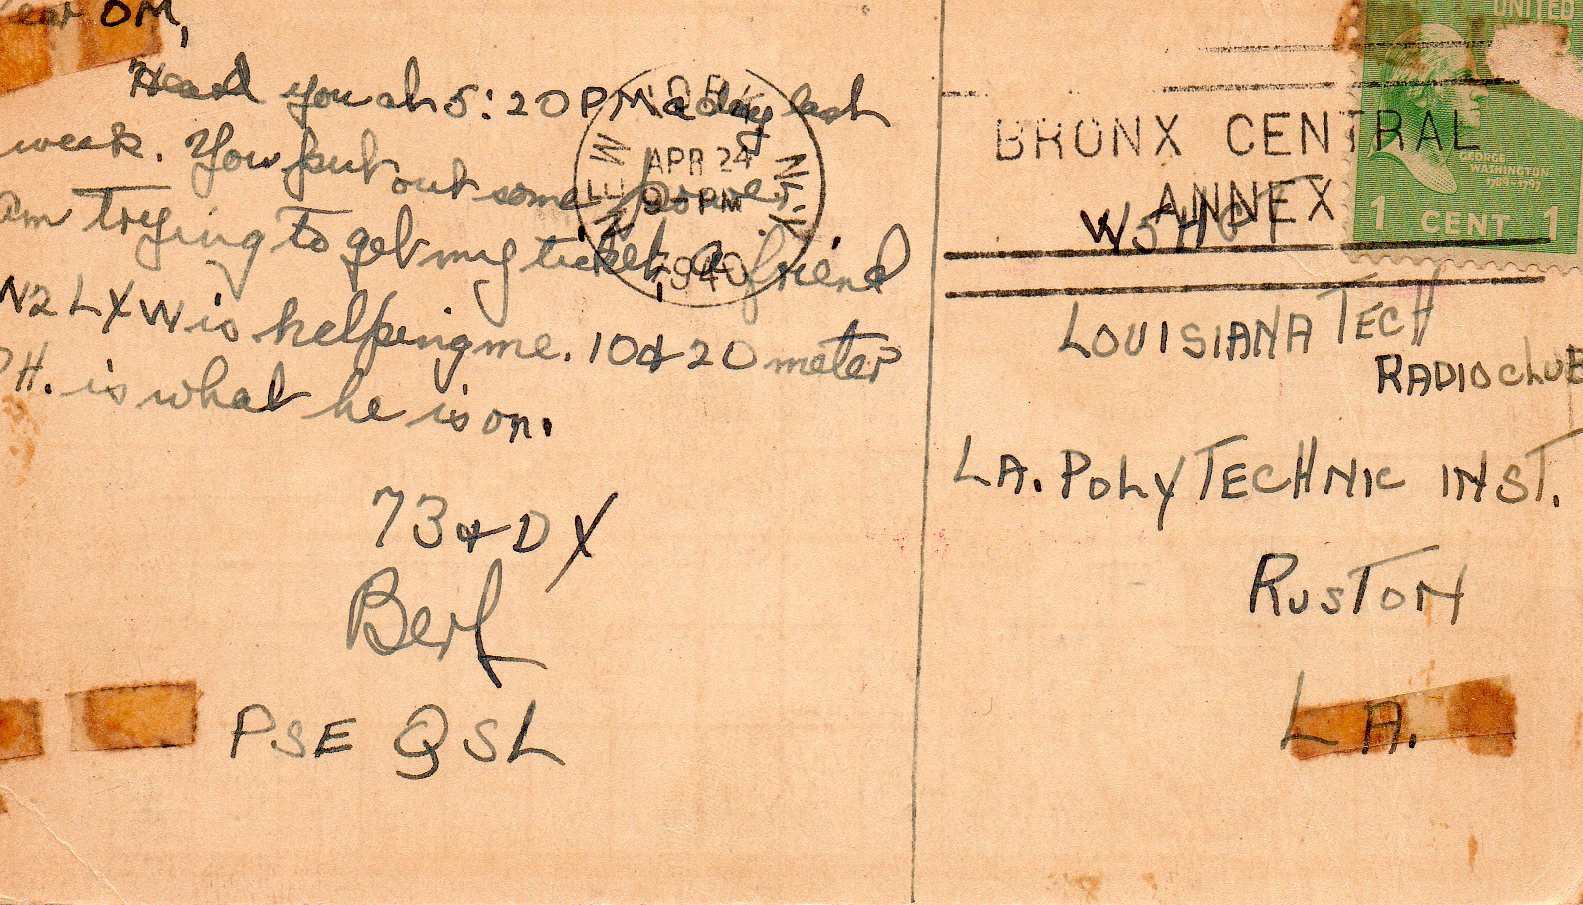 Dear OM,
Heard you at 5:20 PM a day last
week. You put out some power.
Am trying to get my ticket, a friend
W2LXW is helping me. 10 & 20 meter
PH. is what he is on.
73 & DX
Berl
PSE QSL
NEW YORK, N.Y.
APR 24
9-PM
1940
BRONX CENTRAL
ANNEX
UNITED
GEORGE
WASHINGTON
1789-1797
1 CENT 1
LOUISIANA TECH
RADIO CLUB
LA. POLYTECHNIC INST.
RUSTON
LA.